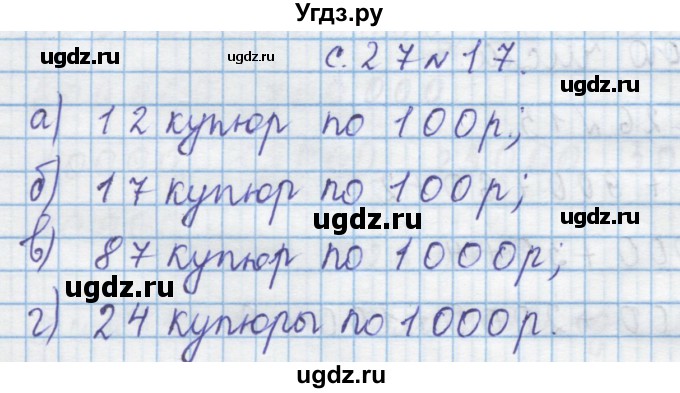 Угдз.ру
ugdz.ru ugdz.ru с. 27 № 17. ugdz.ru
а) 12 купюр по 100р.;
б) 17 купюр по 100р;
ugdz.ru ugdz.ru
в) 87 купюр по 1000р;
ugdz.ru
г) 24 купюры по 1000р.
ugdz.ru ugdz.ru
ugdz.ru